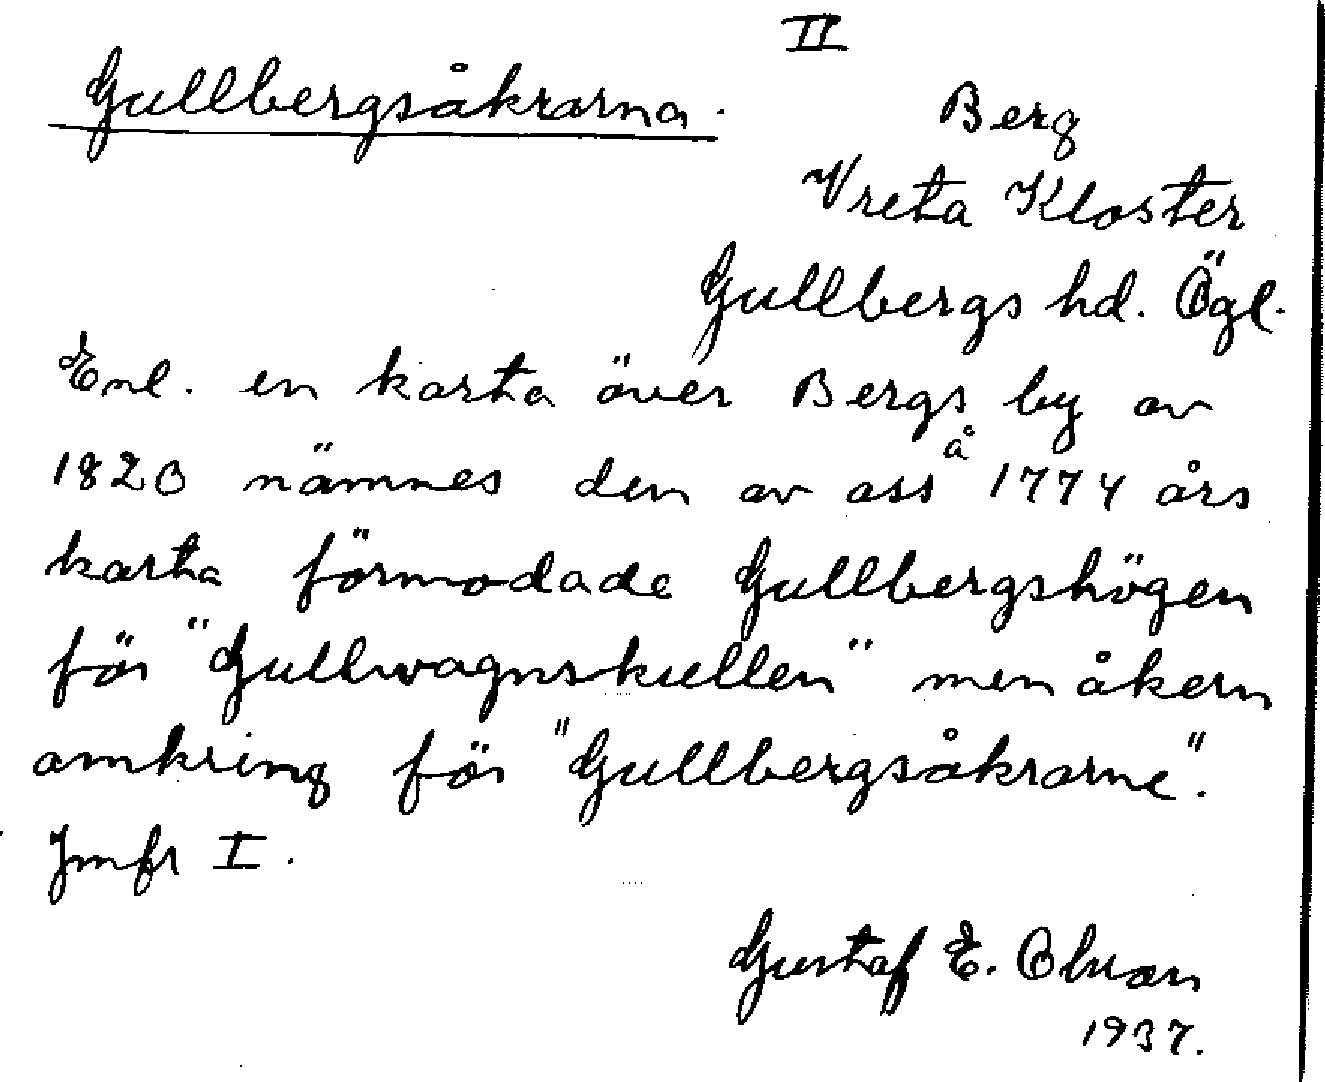 II
Gullbergsåkrarna.
Berg
Vreta Kloster
Gullbergs hd. Ögl.
Enl. en karta över Bergs by av
1820 nämnes den av oss å 1774 års
karta förmodade Gullbergshögen
för "Gullwagnskullen" men åkern
omkring för "Gullbergsåkrarne".
Jmfr I.
Gustaf E. Olsson
1937.